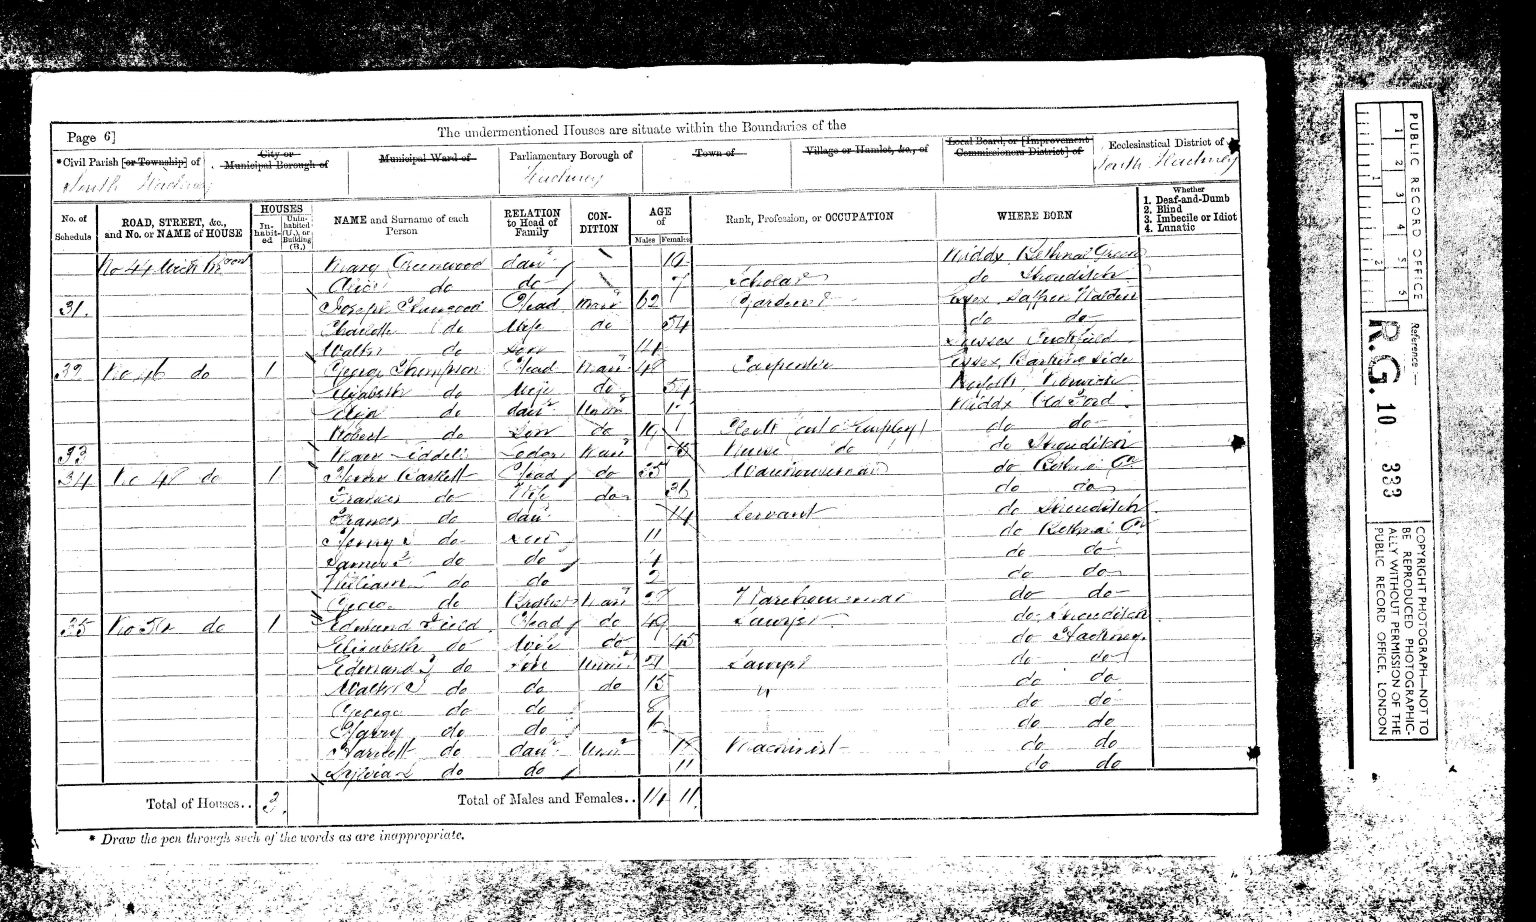 Page 6]
The undermentioned Houses are situate within the Boundaries of the
*Civil Parish [or Township] of
City or Municipal Borough of
Municipal Ward of
Parliamentary Borough of
Town of
Village or Hamlet, &c., of
Local Board, or [Improvement Commissioners District] of
Ecclesiastical District of
South Hackney
Hackney
South Hackney
No. of Schedule
ROAD, STREET, &c., and No. or NAME of HOUSE
HOUSES
In-habit-ed
Unin-habited (U.), or Building (B.)
NAME and Surname of each Person
RELATION to Head of Family
CON-DITION
AGE of
Males
Females
Rank, Profession, or OCCUPATION
WHERE BORN
Whether
1. Deaf-and-Dumb
2. Blind
3. Imbecile or Idiot
4. Lunatic
No 44 Wick Mary Greenwood daur Middx Bethnal Green
do do 7 Scholar do Shoreditch
31. Joseph Head Marr 62 Gardener Essex Saffron Walden
Charlotte do Wife do 54 do do
Walter do Son Sussex
32 No 46 do 1 George Thompson Head Marr 48 Carpenter Essex Barking side
Elizabeth do Wife do 54 Norfolk Norwich
do daur Unmar Middx Old Ford
Robert do Son do 19 (out of Employ) do do
33 Lodger Marr Nurse do do Shoreditch
34 No 48 do 1 Henry Baskett Head do 35 Warehouseman do Bethnal Gn
Frances do Wife do 36 do do
Frances do daur 14 Servant do Shoreditch
Henry do Son 11 do Bethnal Gn
James do do 4 do do
William do do 2 do do
George do Brother Marr 27 Warehouseman do do
35 No 50 do 1 Edmund Field Head do 49 Sawyer do Shoreditch
Elizabeth do Wife do 45 do Hackney
Edmund do Son Unmar 21 Sawyer do do
Walter do do do 15 " do do
George do do 8 do do
Harry do do 6 do do
Harriett do daur Unmr 18 Machinist do do
Sylvia do do 11 do do
Total of Houses.. 3
Total of Males and Females.. 14 11
* Draw the pen through such of the words as are inappropriate.
PUBLIC RECORD OFFICE
1 2 3 4 5 6
1 2
Reference:—
R.G. 10 333
COPYRIGHT PHOTOGRAPH—NOT TO
BE REPRODUCED PHOTOGRAPHIC-
ALLY WITHOUT PERMISSION OF THE
PUBLIC RECORD OFFICE, LONDON